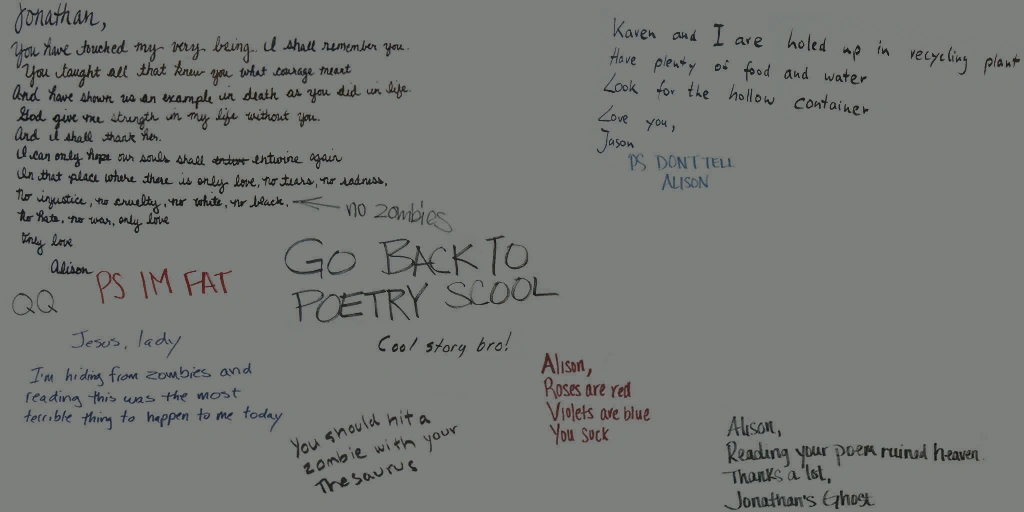 Jonathan,
You have touched my very being. I shall remember you.
You taught all that knew you what courage meant
And have shown us an example in death as you did in life.
God give me strength in my life without you.
And I shall thank her.
I can only hope our souls shall entwine again
In that place where there is only love, no tears, no sadness,
No injustice, no cruelty, no white, no black,
no zombies
No hate, no war, only love
Only love
Alison
PS IM FAT
QQ
GO BACK TO
POETRY SCOOL
Cool story bro!
Jesus, lady
I'm hiding from zombies and
reading this was the most
terrible thing to happen to me today
You should hit a
zombie with your
Thesaurus
Alison,
Roses are red
Violets are blue
You suck
Karen and I are holed up in recycling plant
Have plenty of food and water
Look for the hollow container
Love you,
Jason
PS DON'T TELL
ALISON
Alison,
Reading your poem ruined heaven.
Thanks a lot,
Jonathan's Ghost